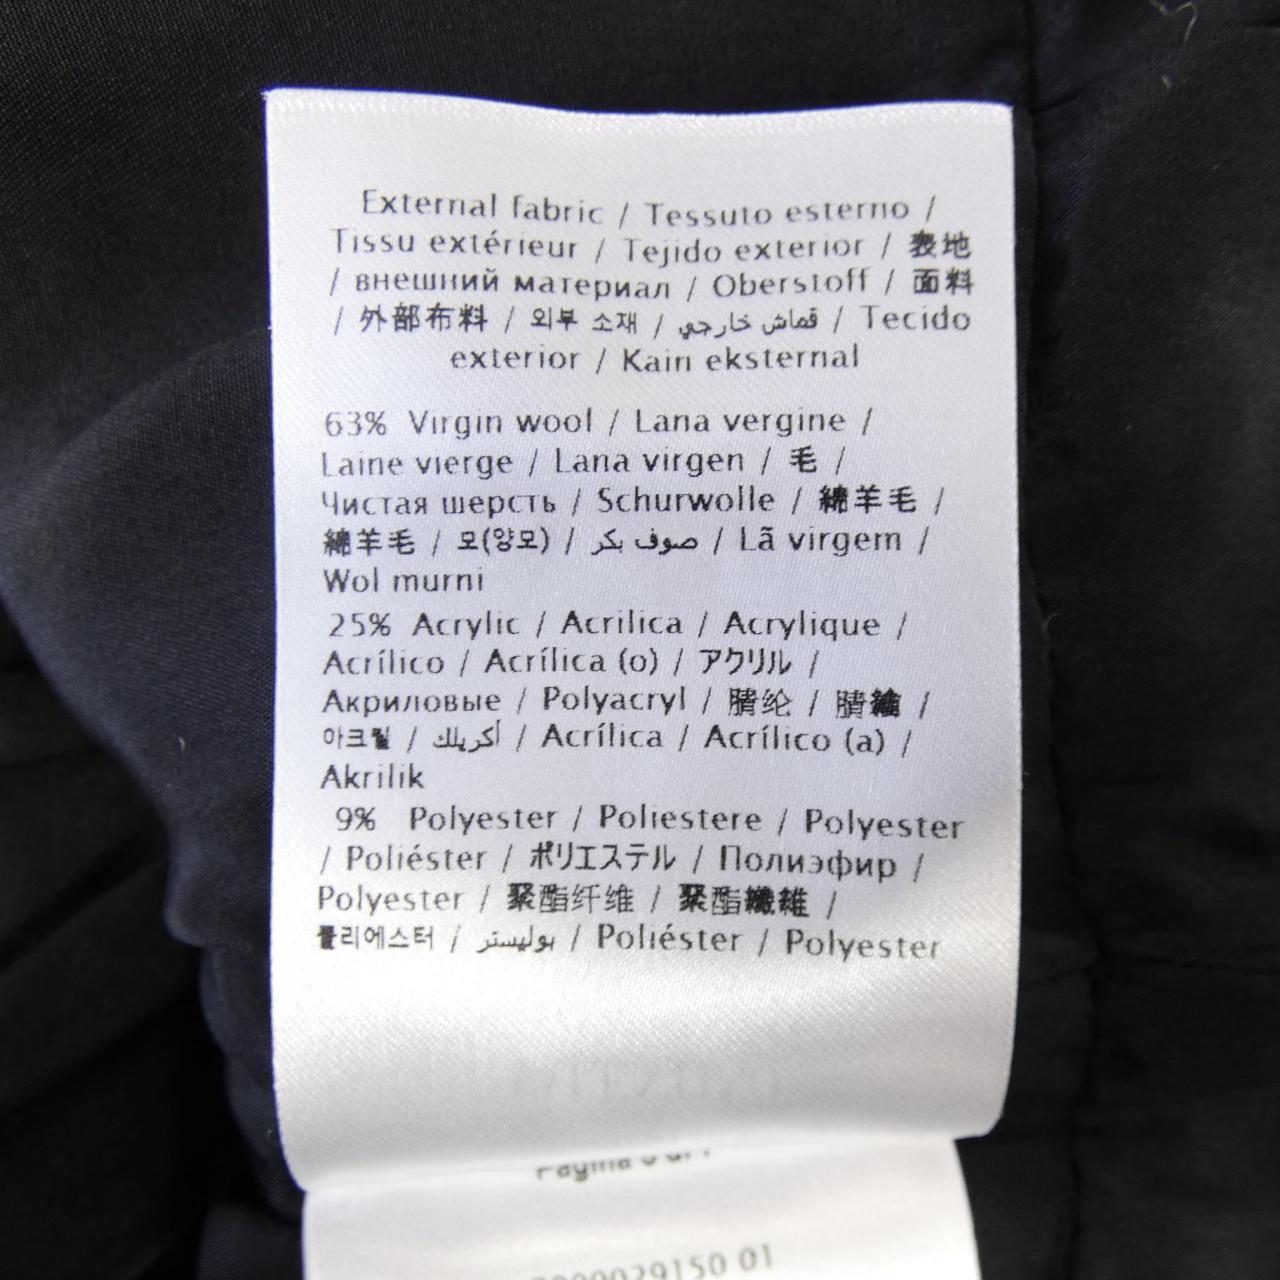 External fabric / Tessuto esterno /
Tissu extérieur / Tejido exterior / 表地
/ внешний материал / Oberstoff / 面料
/ 外部布料 / 외부 소재 / قماش خارجي / Tecido
exterior / Kain eksternal
63% Virgin wool / Lana vergine /
Laine vierge / Lana virgen / 毛 /
Чистая шерсть / Schurwolle / 綿羊毛 /
綿羊毛 / 모(양모) / صوف بكر / Lã virgem /
Wol murni
25% Acrylic / Acrilica / Acrylique /
Acrílico / Acrílica (o) / アクリル /
Акриловые / Polyacryl / 腈纶 / 腈綸 /
아크릴 / أكريلك / Acrílica / Acrílico (a) /
Akrilik
9% Polyester / Poliestere / Polyester
/ Poliéster / ポリエステル / Полиэфир /
Polyester / 聚酯纤维 / 聚酯纖維 /
폴리에스터 / بوليستر / Poliéster / Polyester
Pagina
29150 01